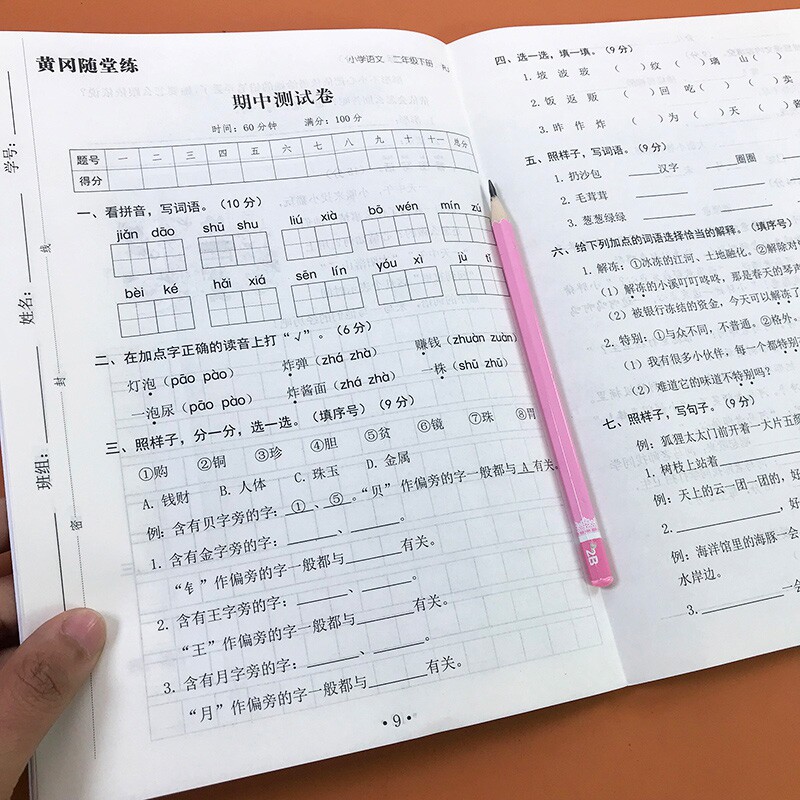 黄冈随堂练
小学语文 二年级下册 RJ
期中测试卷
时间：60分钟 满分：100分
题号 一 二 三 四 五 六 七 八 九 十 十一 总分
得分
一、看拼音，写词语。（10分）
jiǎn dāo shū shu liú xià bō wén mín zú
bèi ké hǎi xiá sēn lín yóu xì jù
二、在加点字正确的读音上打“√”。（6分）
灯泡（pāo pào） 炸弹（zhá zhà） 赚钱（zhuàn zuàn）
一泡尿（pāo pào） 炸酱面（zhá zhà） 一株（shū zhū）
三、照样子，分一分，选一选。（填序号）（9分）
①购 ②铜 ③珍 ④胆 ⑤贫 ⑥镜 ⑦珠 ⑧
A. 钱财 B. 人体 C. 珠玉 D. 金属
例：含有贝字旁的字：①、⑤。“贝”作偏旁的字一般都与A有关。
1. 含有金字旁的字：______、______。
“钅”作偏旁的字一般都与______有关。
2. 含有王字旁的字：______、______。
“王”作偏旁的字一般都与______有关。
3. 含有月字旁的字：______、______。
“月”作偏旁的字一般都与______有关。
·9·
学号：
姓名：
班组：
线
封
密
四、选一选，填一填。（9分）
1. 坡 波 玻 （ ）纹 （ ）璃 山（ ）
2. 饭 返 贩 （ ）回 吃（ ） （ ）卖
3. 昨 作 炸 （ ）为 （ ）天 （ ）
五、照样子，写词语。（9分）
1. 扔沙包 ______汉字 ______圈圈
2. 毛茸茸
3. 葱葱绿绿
六、给下列加点的词语选择恰当的解释。（填序号）
1. 解冻：①冰冻的江河、土地融化。②解除对
（1）解冻的小溪叮叮咚咚，那是春天的琴声
（2）被银行冻结的资金，今天可以解冻了
2. 特别：①与众不同，不普通。②格外。
（1）我有很多小伙伴，每一个都特别
（2）难道它的味道不特别吗？
七、照样子，写句子。（9分）
例：狐狸太太门前开着一大片五颜
1. 树枝上站着
例：天上的云一团一团的，好
2. ______，好
例：海洋馆里的海豚一会
水岸边。
3. ______一会
2B